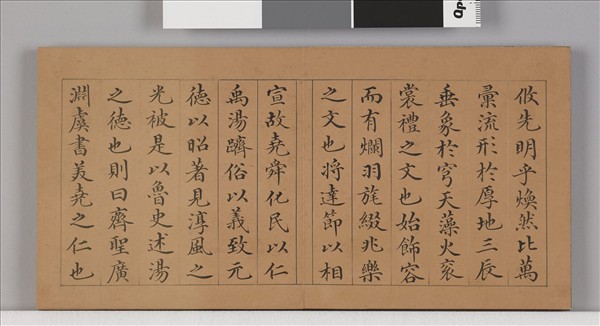 攸先明乎煥然比萬
彙流形於厚地三辰
垂象於穹天藻火衮
裳禮之文也始飾容
而有爛羽旄綴兆樂
之文也将達節以相
宣故堯舜化民以仁
禹湯躋俗以義致元
德以昭著見淳風之
光被是以魯史述湯
之德也則曰齊聖廣
淵虞書美堯之仁也